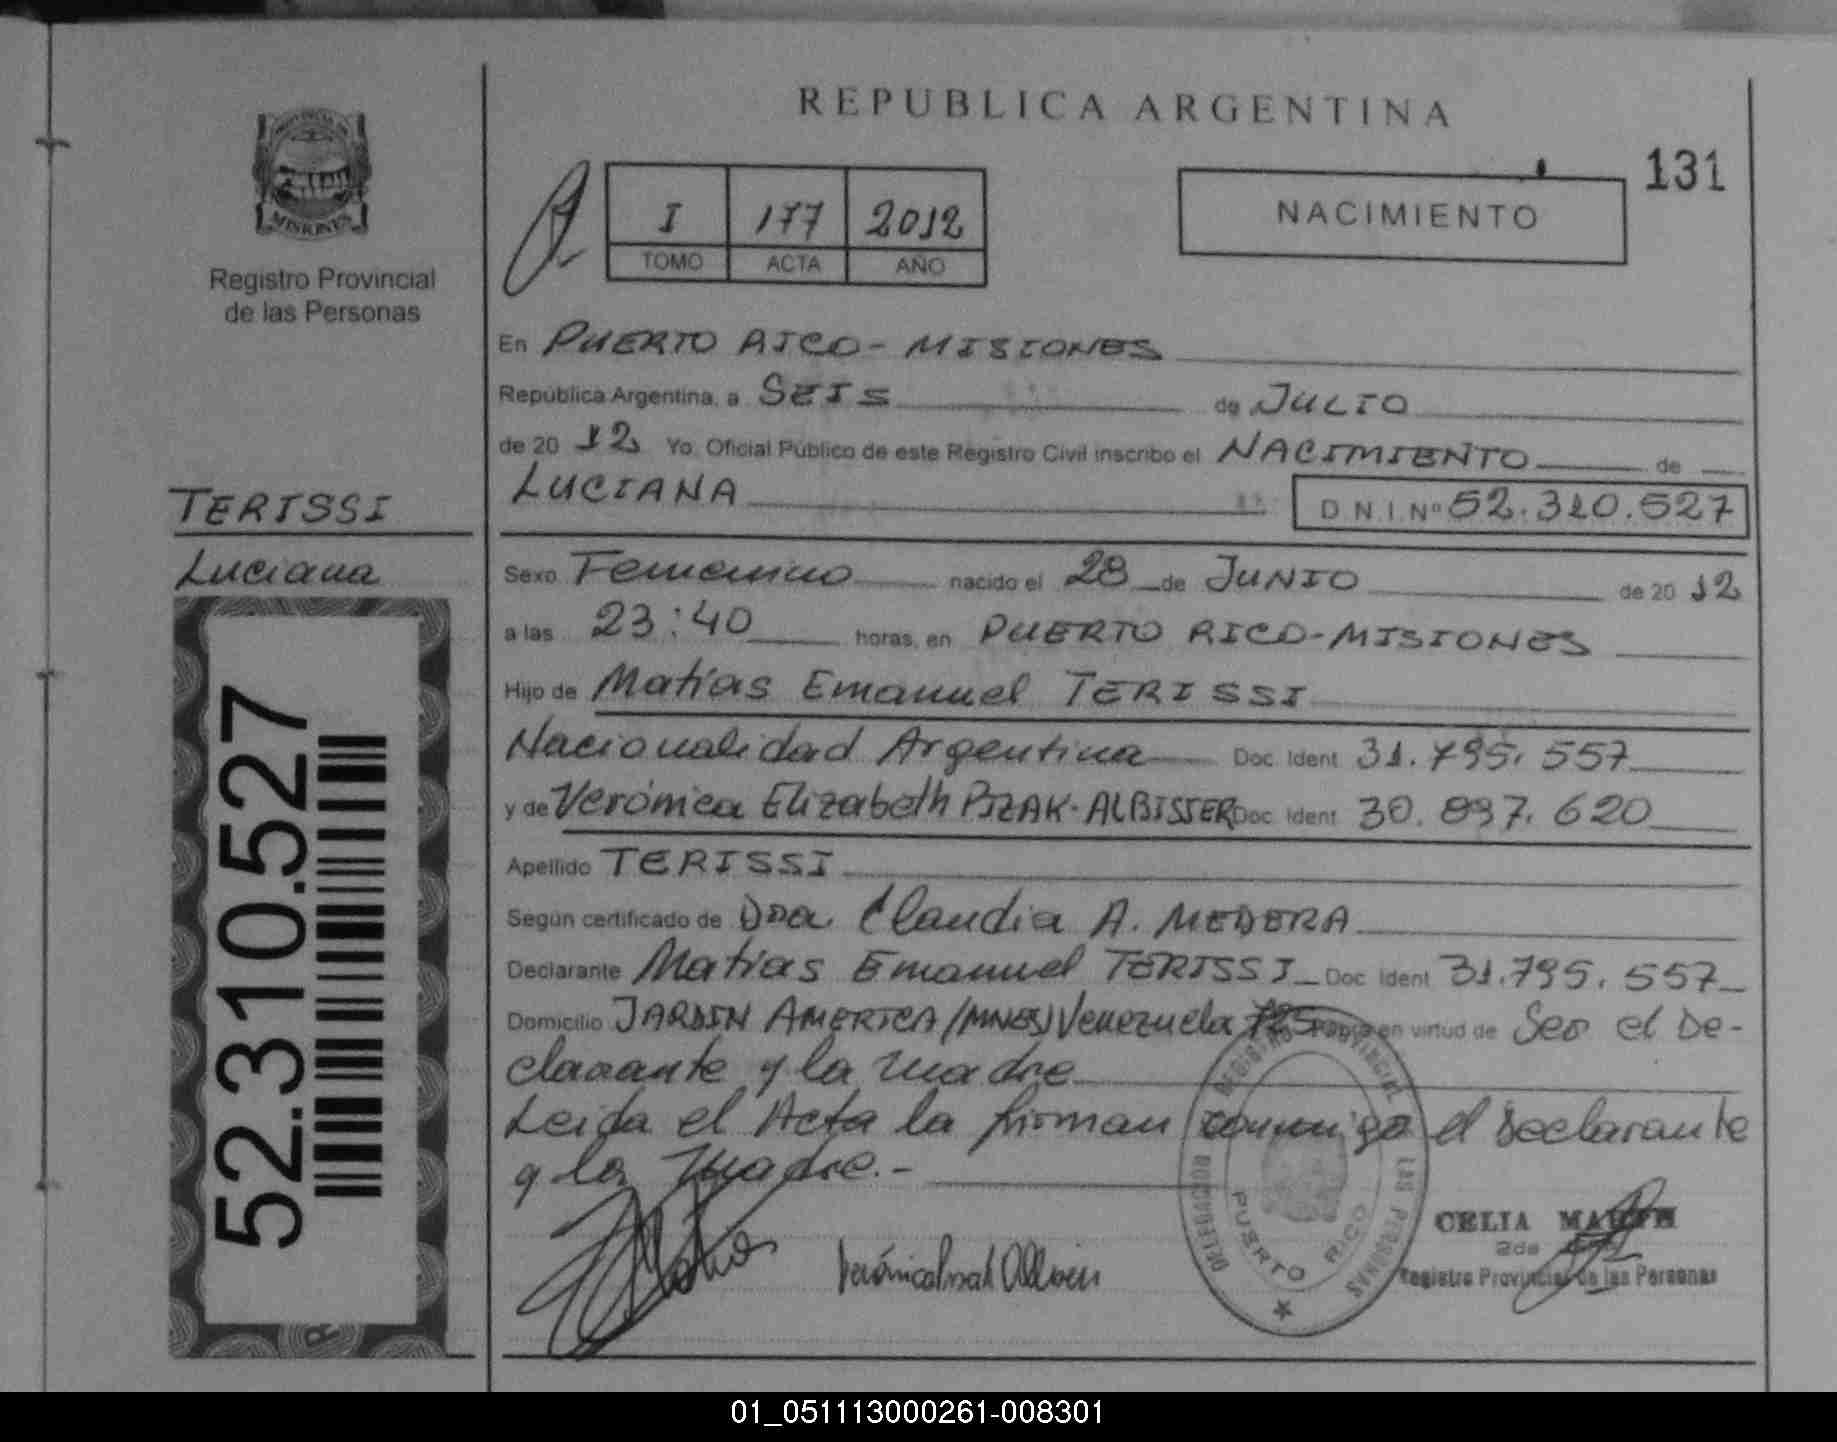 REPUBLICA ARGENTINA
131
I 177 2012
TOMO ACTA AÑO
NACIMIENTO
MISIONES
Registro Provincial
de las Personas
En PUERTO RICO - MISIONES
República Argentina, a SEIS de JULIO
de 20 12 Yo, Oficial Público de este Registro Civil inscribo el NACIMIENTO de
LUCIANA D.N.I. Nº 52.310.527
TERISSI
Luciana
52.310.527
Sexo Femenino nacido el 28 de JUNIO de 20 12
a las 23:40 horas, en PUERTO RICO - MISIONES
Hijo de Matías Emanuel TERISSI
Nacionalidad Argentina Doc. Ident. 31.795.557
y de Verónica Elizabeth PIZAK - ALBISSER Doc. Ident. 30.897.620
Apellido TERISSI
Según certificado de Dra. Claudia A. MEDERA
Declarante Matías Emanuel TERISSI Doc. Ident. 31.795.557
Domicilio JARDIN AMERICA (MNES) Venezuela 725 en virtud de Ser el De-
clarante y la madre
Leida el Acta la firman conmigo el Declarante
y la Madre.-
DELEGACION REGISTRO PROVINCIAL LAS PERSONAS
PUERTO RICO
CELIA
Registro Provincial de las Personas
01_051113000261-008301